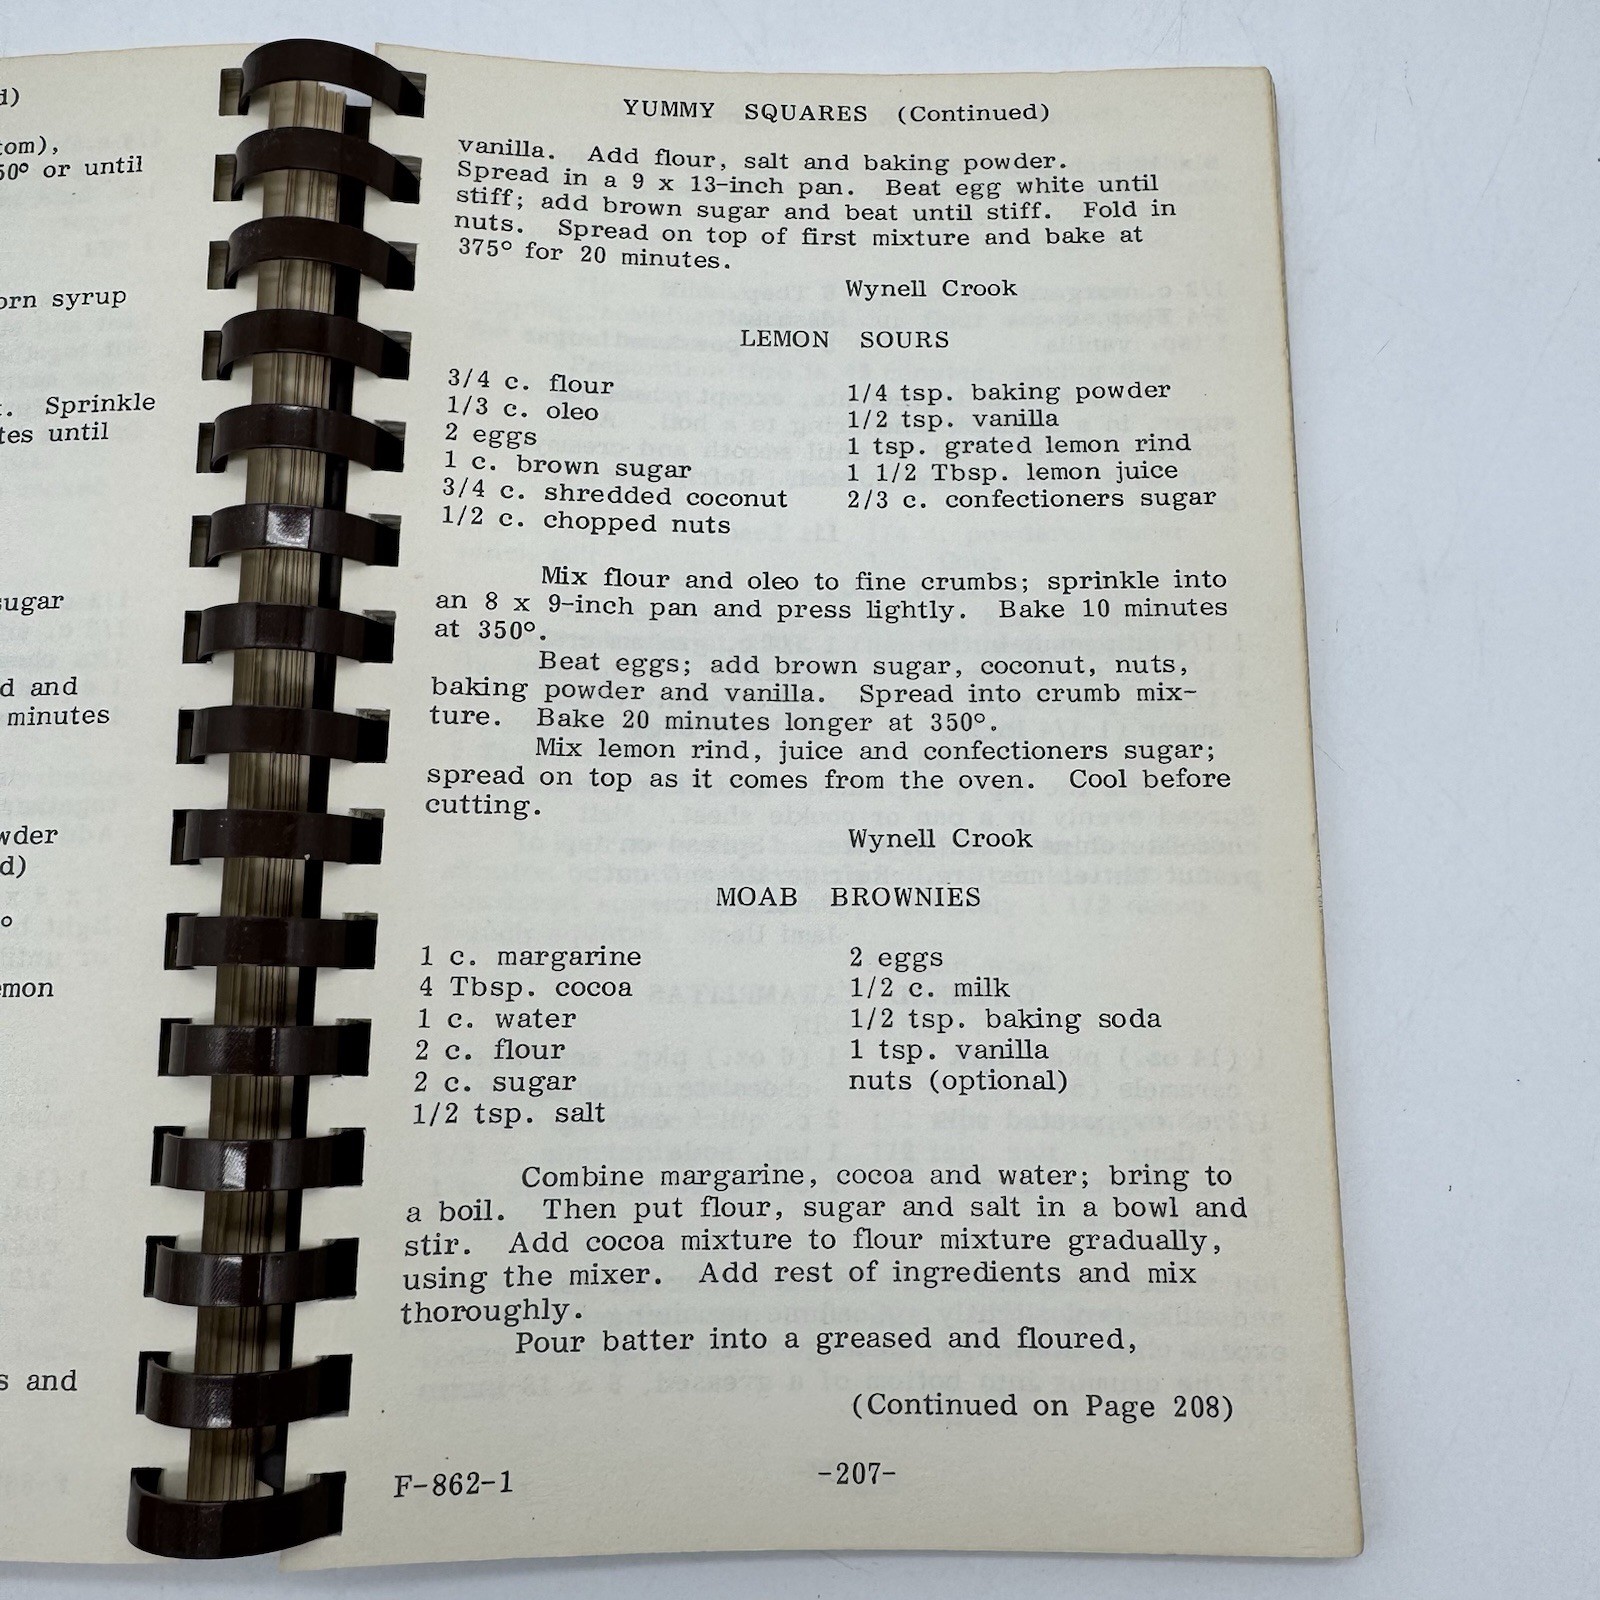 d)
tom),
50° or until
orn syrup
. Sprinkle
tes until
sugar
d and
minutes
wder
d)
°
emon
s and
YUMMY SQUARES (Continued)
vanilla. Add flour, salt and baking powder.
Spread in a 9 x 13-inch pan. Beat egg white until
stiff; add brown sugar and beat until stiff. Fold in
nuts. Spread on top of first mixture and bake at
375° for 20 minutes.
Wynell Crook
LEMON SOURS
3/4 c. flour
1/3 c. oleo
2 eggs
1 c. brown sugar
3/4 c. shredded coconut
1/2 c. chopped nuts
1/4 tsp. baking powder
1/2 tsp. vanilla
1 tsp. grated lemon rind
1 1/2 Tbsp. lemon juice
2/3 c. confectioners sugar
Mix flour and oleo to fine crumbs; sprinkle into
an 8 x 9-inch pan and press lightly. Bake 10 minutes
at 350°.
Beat eggs; add brown sugar, coconut, nuts,
baking powder and vanilla. Spread into crumb mix-
ture. Bake 20 minutes longer at 350°.
Mix lemon rind, juice and confectioners sugar;
spread on top as it comes from the oven. Cool before
cutting.
Wynell Crook
MOAB BROWNIES
1 c. margarine
4 Tbsp. cocoa
1 c. water
2 c. flour
2 c. sugar
1/2 tsp. salt
2 eggs
1/2 c. milk
1/2 tsp. baking soda
1 tsp. vanilla
nuts (optional)
Combine margarine, cocoa and water; bring to
a boil. Then put flour, sugar and salt in a bowl and
stir. Add cocoa mixture to flour mixture gradually,
using the mixer. Add rest of ingredients and mix
thoroughly.
Pour batter into a greased and floured,
(Continued on Page 208)
F-862-1
-207-